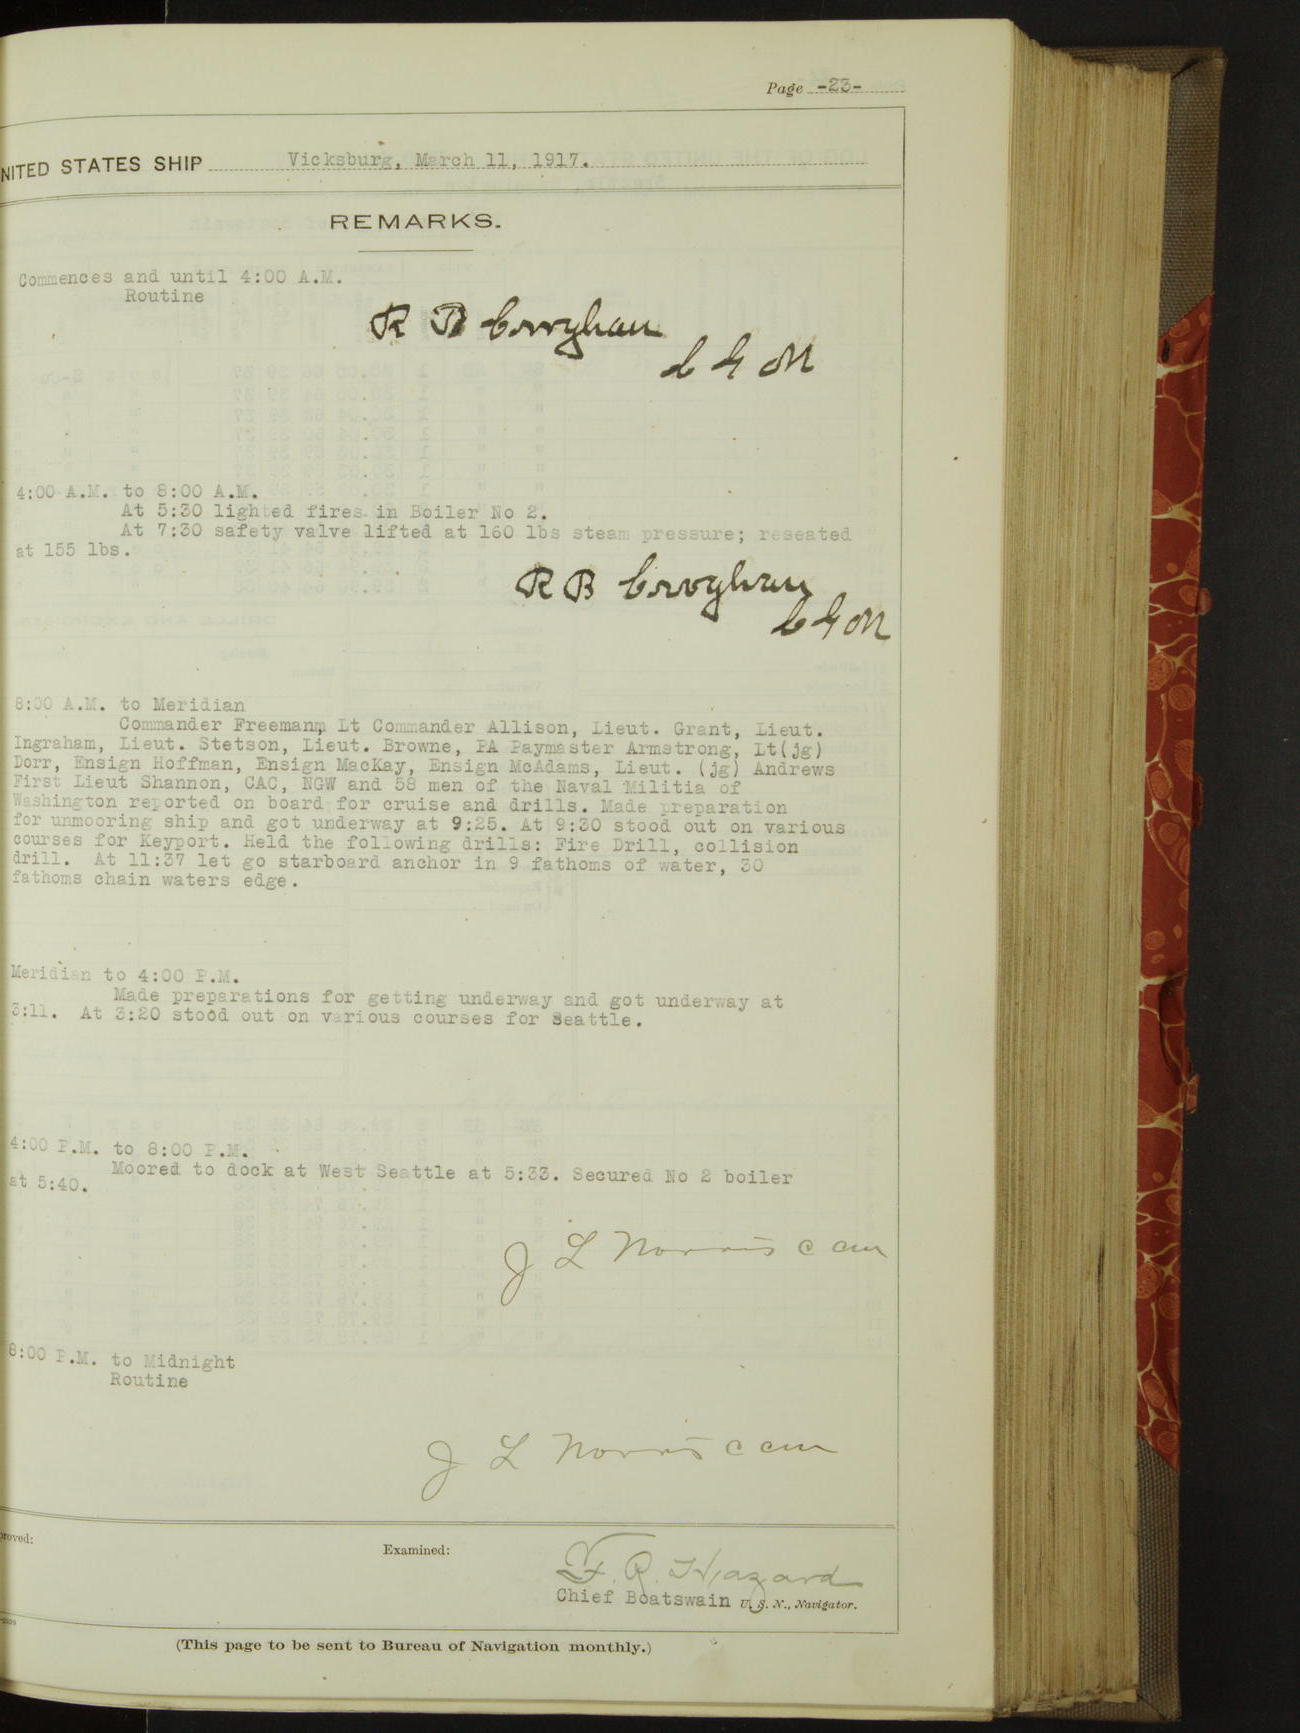 Page -23-
NITED STATES SHIP Vicksburg, March 11, 1917.
REMARKS.
Commences and until 4:00 A.M.
Routine
R B Croghan
C G M
4:00 A.M. to 8:00 A.M.
At 5:30 lighted fires in Boiler No 2.
At 7:30 safety valve lifted at 160 lbs steam pressure; reseated
at 155 lbs.
R B Croghan
C G M
8:00 A.M. to Meridian
Commander Freemann, Lt Commander Allison, Lieut. Grant, Lieut.
Ingraham, Lieut. Stetson, Lieut. Browne, PA Paymaster Armstrong, Lt(jg)
Dorr, Ensign Hoffman, Ensign MacKay, Ensign McAdams, Lieut. (jg) Andrews
First Lieut Shannon, CAC, NGW and 58 men of the Naval Militia of
Washington reported on board for cruise and drills. Made preparation
for unmooring ship and got underway at 9:25. At 9:30 stood out on various
courses for Keyport. Held the following drills: Fire Drill, collision
drill. At 11:37 let go starboard anchor in 9 fathoms of water, 30
fathoms chain waters edge.
Meridian to 4:00 P.M.
Made preparations for getting underway and got underway at
3:11. At 3:20 stood out on various courses for Seattle.
4:00 P.M. to 8:00 P.M.
Moored to dock at West Seattle at 5:33. Secured No 2 boiler
at 5:40.
J L Norris C
8:00 P.M. to Midnight
Routine
J L Norris C
proved:
Examined:
F. R. Hazard
Chief Boatswain U. S. N., Navigator.
(This page to be sent to Bureau of Navigation monthly.)